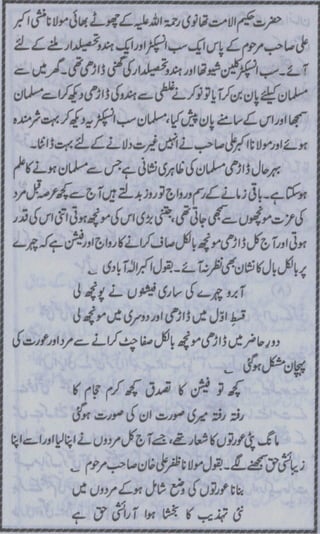 حضرت حکیم الامت تھانوی رحمۃ اللہ علیہ کے چھوٹے بھائی مولانا منشی اکبر
علی صاحب مرحوم کے پاس ایک سب انسپکٹر اور ایک ہندو تحصیلدار ملنے کے لئے
آئے۔ سب انسپکٹر کلین شیو تھا اور ہندو تحصیلدار کی گھنی ڈاڑھی تھی۔ گھر میں سے
مسلمان کیلئے پان بن کر آیا تو نوکر نے غلطی سے ہندو کی ڈاڑھی دیکھ کر اسے مسلمان
سمجھا اور اس کے سامنے پان پیش کیا، مسلمان سب انسپکٹر یہ دیکھ کر بہت شرمندہ
ہوئے اور مولانا اکبر علی صاحب نے انہیں غیرت دلانے کے لئے بہت ڈانٹا۔
بہر حال ڈاڑھی مسلمان کی ظاہری نشانی ہے جس سے مسلمان ہونے کا علم
ہو سکتا ہے۔ باقی زمانے کے رسم و رواج تو روز بدلتے ہیں آج سے کچھ عرصہ قبل مرد
کی عزت مونچھوں سے سمجھی جاتی تھی، جتنی بڑی اس کی مونچھ ہوتی اتنی اس کی قدر
ہوتی اور آج کل ڈاڑھی مونچھ بالکل صاف کرانے کا رواج اور فیشن ہے کہ چہرے
پر بالکل بال کا نشان بھی نظر نہ آئے۔ بقول اکبر الہ آبادی
آبرو چہرے کی ساری فیشنوں نے پونچھ لی
قسطِ اوّل میں ڈاڑھی اور دوسری میں مونچھ لی
دورِ حاضر میں ڈاڑھی مونچھ بالکل صفا چٹ کرانے سے مرد اور عورت کی
پہچان مشکل ہوگئی
کچھ تو فیشن کا تصدق کچھ کرم حجام کا
رفتہ رفتہ میری صورت ان کی صورت ہوگئی
مانگ پٹی عورتوں کا شعار تھے، جسے آج کل مردوں نے اپنا لیا اور اسے اپنا
زیبائشی حق سمجھنے لگے۔ بقول مولانا ظفر علی خان صاحب مرحوم
بنانا عورتوں کی وضع شامل ہو کے مردوں میں
نئی تہذیب کا بخشا ہوا آرائشی حق ہے